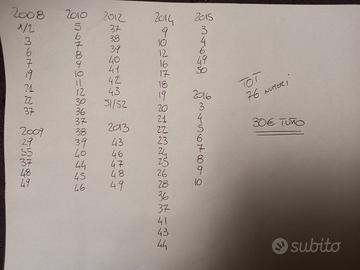 2008
1/2
3
6
7
19
21
22
37
2009
29
35
37
48
49
2010
5
6
7
9
10
11
12
30
36
37
38
39
40
44
45
46
2012
37
38
39
40
41
42
43
51/52
2013
43
46
47
48
49
2014
9
10
12
16
17
18
19
20
21
22
23
24
25
26
28
36
37
41
43
44
2015
3
4
6
49
50
2016
3
4
5
6
7
8
9
10
TOT
76 NUMERI
30€ TUTTO
subito